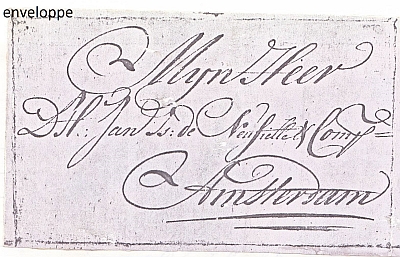 enveloppe
Mijn Heer
D H: Jan Is: de Neufville & Comp=
Amsterdam